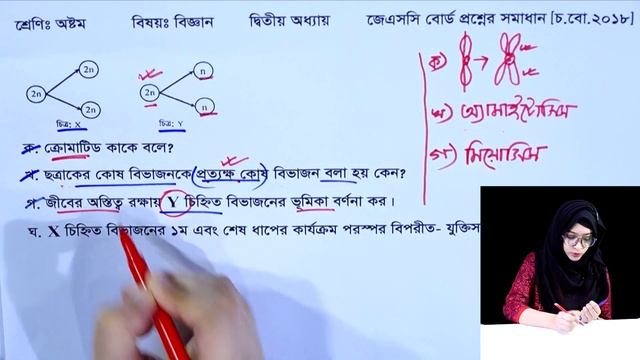 শ্রেণিঃ অষ্টম বিষয়ঃ বিজ্ঞান দ্বিতীয় অধ্যায় জেএসসি বোর্ড প্রশ্নের সমাধান [চ.বো.২০১৮]
2n 2n 2n
চিত্র: X
2n n n
চিত্র: Y
ক. ক্রোমাটিড কাকে বলে?
খ. ছত্রাকের কোষ বিভাজনকে প্রত্যক্ষ কোষ বিভাজন বলা হয় কেন?
গ. জীবের অস্তিত্ব রক্ষায় Y চিহ্নিত বিভাজনের ভূমিকা বর্ণনা কর।
ঘ. X চিহ্নিত বিভাজনের ১ম এবং শেষ ধাপের কার্যক্রম পরস্পর বিপরীত- যুক্তিস
ক)
খ) অ্যামাইটোসিস
গ) মিয়োসিস